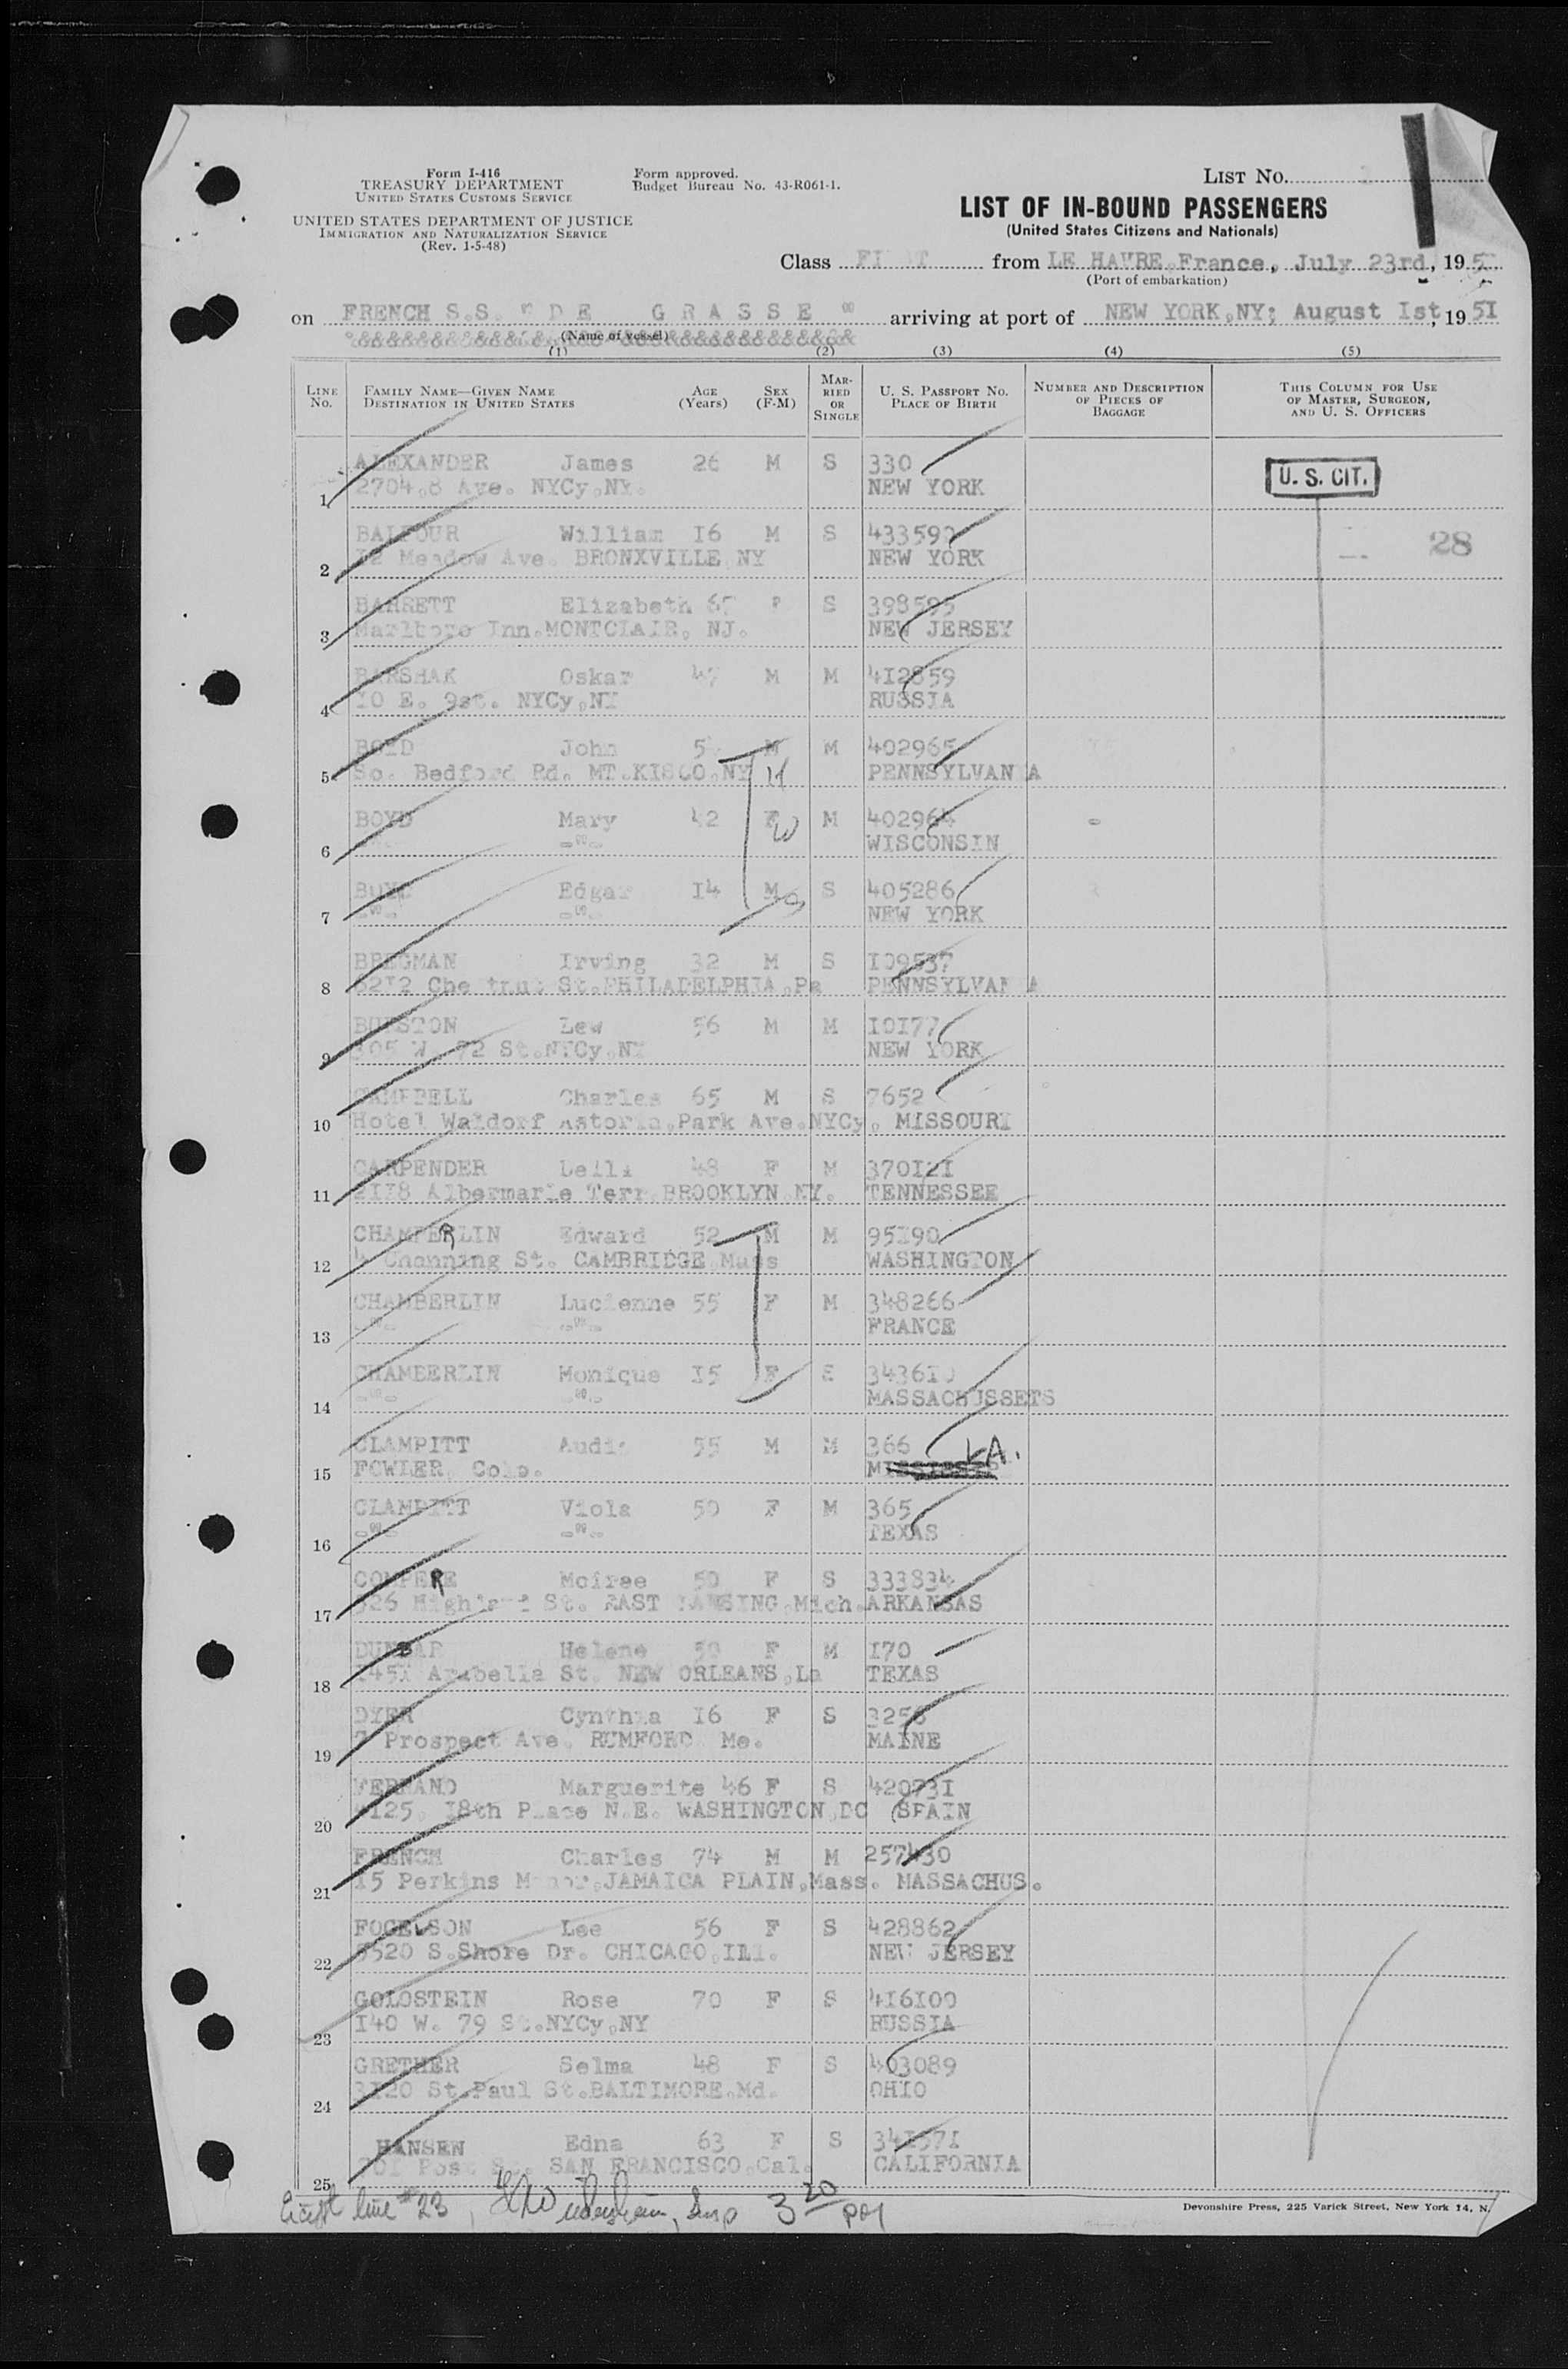 Form I-416
TREASURY DEPARTMENT
UNITED STATES CUSTOMS SERVICE
UNITED STATES DEPARTMENT OF JUSTICE
IMMIGRATION AND NATURALIZATION SERVICE
(Rev. 1-5-48)
Form approved.
Budget Bureau No. 43-R061-1.
LIST No.
LIST OF IN-BOUND PASSENGERS
(United States Citizens and Nationals)
Class from LE HAVRE,France, July 23rd, 195
(Port of embarkation)
on FRENCH S.S. " D E G R A S S E " arriving at port of NEW YORK,NY; August 1st, 1951
(Name of vessel)
(1) (2) (3) (4) (5)
LINE No. FAMILY NAME—GIVEN NAME DESTINATION IN UNITED STATES AGE (Years) SEX (F-M) MARRIED OR SINGLE U. S. PASSPORT No. PLACE OF BIRTH NUMBER AND DESCRIPTION OF PIECES OF BAGGAGE THIS COLUMN FOR USE OF MASTER, SURGEON, AND U. S. OFFICERS
ALEXANDER James 26 M S 330 U. S. CIT.
1 2704,8 Ave. NYCy,NY. NEW YORK
BALFOUR William 16 M S 433590 28
2 12 Meadow Ave. BRONXVILLE NY NEW YORK
BARRETT Elizabeth F S 398595
3 Marlboro Inn.MONTCLAIR, NJ. NEW JERSEY
BARSHAK Oskar 47 M M 412859
4 10 E. 9st. NYCy,NY RUSSIA
BOYD John M M 402965
5 So. Bedford Rd. MT.KISCO,NY H PENNSYLVANIA
BOYD Mary 42 F W M 402964
6 -"- WISCONSIN
BOYD Edgar 14 M S 405286
7 -"- -"- NEW YORK
BREGMAN Irving 32 M S 109537
8 6212 Chestnut St.PHILADELPHIA,Pa PENNSYLVANIA
BURSTON Lew 56 M M 10177
9 305 W. 72 St.NYCy,NY NEW YORK
CAMPBELL Charles 65 M S 7652
10 Hotel Waldorf Astoria,Park Ave.NYCy, MISSOURI
CARPENDER Leila 48 F M 370121
11 2118 Albermarle Terr.BROOKLYN NY. TENNESSEE
CHAMBERLIN Edward 52 M M 95190
12 4 Channing St. CAMBRIDGE,Mass WASHINGTON
CHAMBERLIN Lucienne 55 F M 348266
13 -"- -"- FRANCE
CHAMBERLIN Monique 15 F S 343610
14 -"- -"- MASSACHUSSETS
CLAMPITT Audie 55 M M 366 LA.
15 FOWLER, Colo.
CLAMPITT Viola 50 F M 365
16 -"- -"- TEXAS
COMPERE Moiree 50 F S 333834
17 326 Highland St. EAST LANSING,Mich.ARKANSAS
DUNBAR Helene 50 F M 170
18 1451 Arabella St. NEW ORLEANS,La TEXAS
DYER Cynthia 16 F S 3256
19 7 Prospect Ave. RUMFORD Me. MAINE
FERNAND Marguerite 46 F S 420731
20 4125, 18th Place N.E. WASHINGTON,DC SPAIN
FRENCH Charles 74 M M 257430
21 15 Perkins Manor,JAMAICA PLAIN,Mass. MASSACHUS.
FOGELSON Lee 56 F S 428862
22 S.Shore Dr. CHICAGO,Ill. NEW JERSEY
GOLDSTEIN Rose 70 F S 416100
23 140 W. 79 St.NYCy,NY RUSSIA
GRETHER Selma 48 F S 403089
24 3120 St.Paul St.BALTIMORE,Md. OHIO
HANSEN Edna 63 F S 341571
25 701 Post St. SAN FRANCISCO,Cal. CALIFORNIA
Except line #23, Insp 3 20 PM
Devonshire Press, 225 Varick Street, New York 14, N.